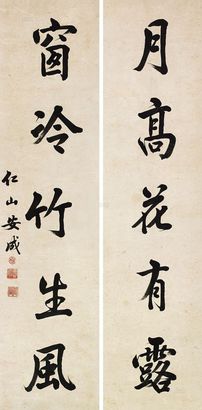 月高花有露
窗冷竹生風
仁山安成